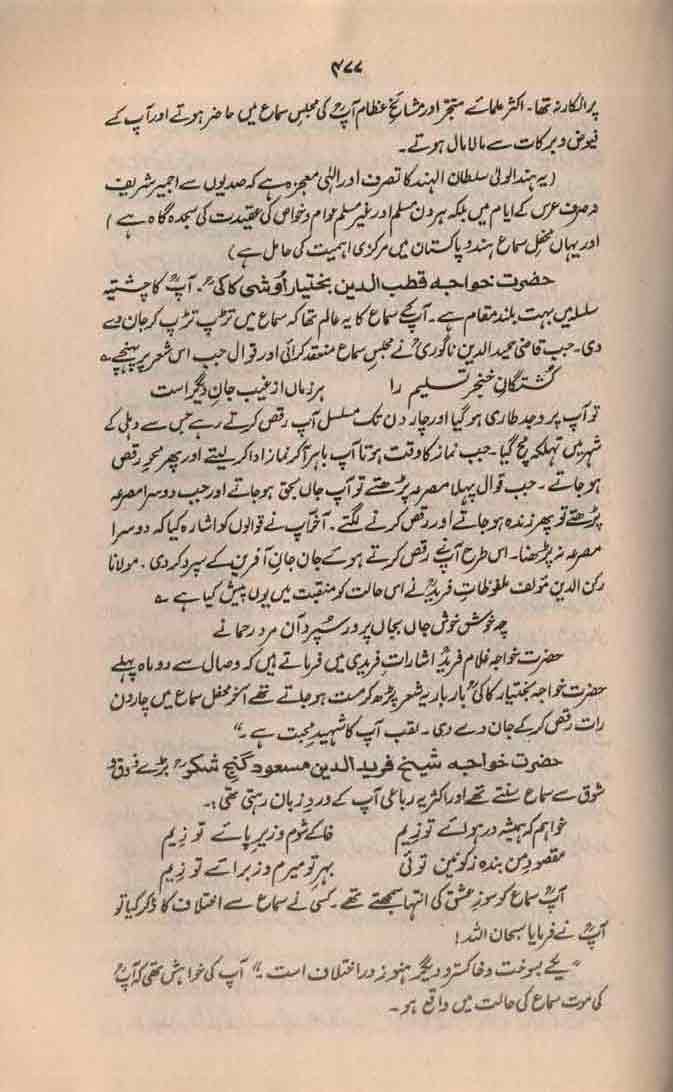 ۴۷۷
پر انکار نہ تھا۔ اکثر علمائے متبحر اور مشائخِ عظام آپؒ کی مجلسِ سماع میں حاضر ہوتے اور آپ کے
فیوض و برکات سے مالا مال ہوتے۔
(یہ ہند الولی سلطان الہند کا تصرف اور الٰہی معجزہ ہے کہ صدیوں سے اجمیر شریف
نہ صرف عرس کے ایام میں بلکہ ہر دن مسلم اور غیر مسلم عوام و خواص کی عقیدت کی سجدہ گاہ ہے)
اور یہاں محفلِ سماع ہند و پاکستان میں مرکزی اہمیت کی حامل ہے)
حضرت خواجہ قطب الدین بختیار اُوشی کاکیؒ۔ آپؒ کا چشتیہ
سلسلہ میں بہت بلند مقام ہے۔ آپکے سماع کا یہ عالم تھا کہ سماع میں تڑپ تڑپ کر جان دے
دی۔ جب قاضی حمید الدین ناگوریؒ نے مجلسِ سماع منعقد کرائی اور قوال جب اس شعر پر پہنچے ؎
کُشتگانِ خنجرِ تسلیم را ہر زماں از غیب جانِ دیگر است
تو آپ پر وجد طاری ہو گیا اور چار دن تک مسلسل آپ رقص کرتے رہے جس سے دہلی کے
شہر میں تہلکہ مچ گیا۔ جب نماز کا وقت ہوتا آپ باہر آ کر نماز ادا کر لیتے اور پھر محوِ رقص
ہو جاتے۔ جب قوال پہلا مصرعہ پڑھتے تو آپ جاں بحق ہو جاتے اور جب دوسرا مصرعہ
پڑھتے تو پھر زندہ ہو جاتے اور رقص کرنے لگتے۔ آخر آپ نے قوالوں کو اشارہ کیا کہ دوسرا
مصرعہ نہ پڑھنا۔ اس طرح آپ نے رقص کرتے ہوئے جان جانِ آفرین کے سپرد کر دی۔ مولانا
رکن الدین مؤلف ملفوظاتِ فریدؒ نے اس حالت کو منقبت میں یوں پیش کیا ہے ؎
چہ خوش خوش جاں بجاں پرور سُپرد آن مردِ رحمانے
حضرت خواجہ غلام فریدؒ اشاراتِ فریدی میں فرماتے ہیں کہ وصال سے دو ماہ پہلے
حضرت خواجہ بختیار کاکیؒ بار بار یہ شعر پڑھ کر مست ہو جاتے تھے آخر محفل سماع میں چار دن
رات رقص کر کے جان دے دی۔ لقب آپ کا شہیدِ محبت ہے۔"
حضرت خواجہ شیخ فرید الدین مسعود گنجِ شکرؒ بڑے ذوق و
شوق سے سماع سنتے تھے اور اکثر یہ رباعی آپ کے وردِ زبان رہتی تھی:۔
خواہم کہ ہمیشہ در ہوائے تو زیم خاکے شوم و زیرِ پائے تو زیم
مقصودِ من بندہ ز کونین توئی بہرِ تو میرم و ز برائے تو زیم
آپؒ سماع کو سوزِ عشق کی انتہا سمجھتے تھے۔ کسی نے سماع سے اختلاف کا ذکر کیا تو
آپؒ نے فرمایا سبحان اللہ!
"یکے بسوخت و خاکستر و دیگر ہنوز در اختلاف است۔" آپ کی خواہش تھی کہ آپؒ
کی موت سماع کی حالت میں واقع ہو۔